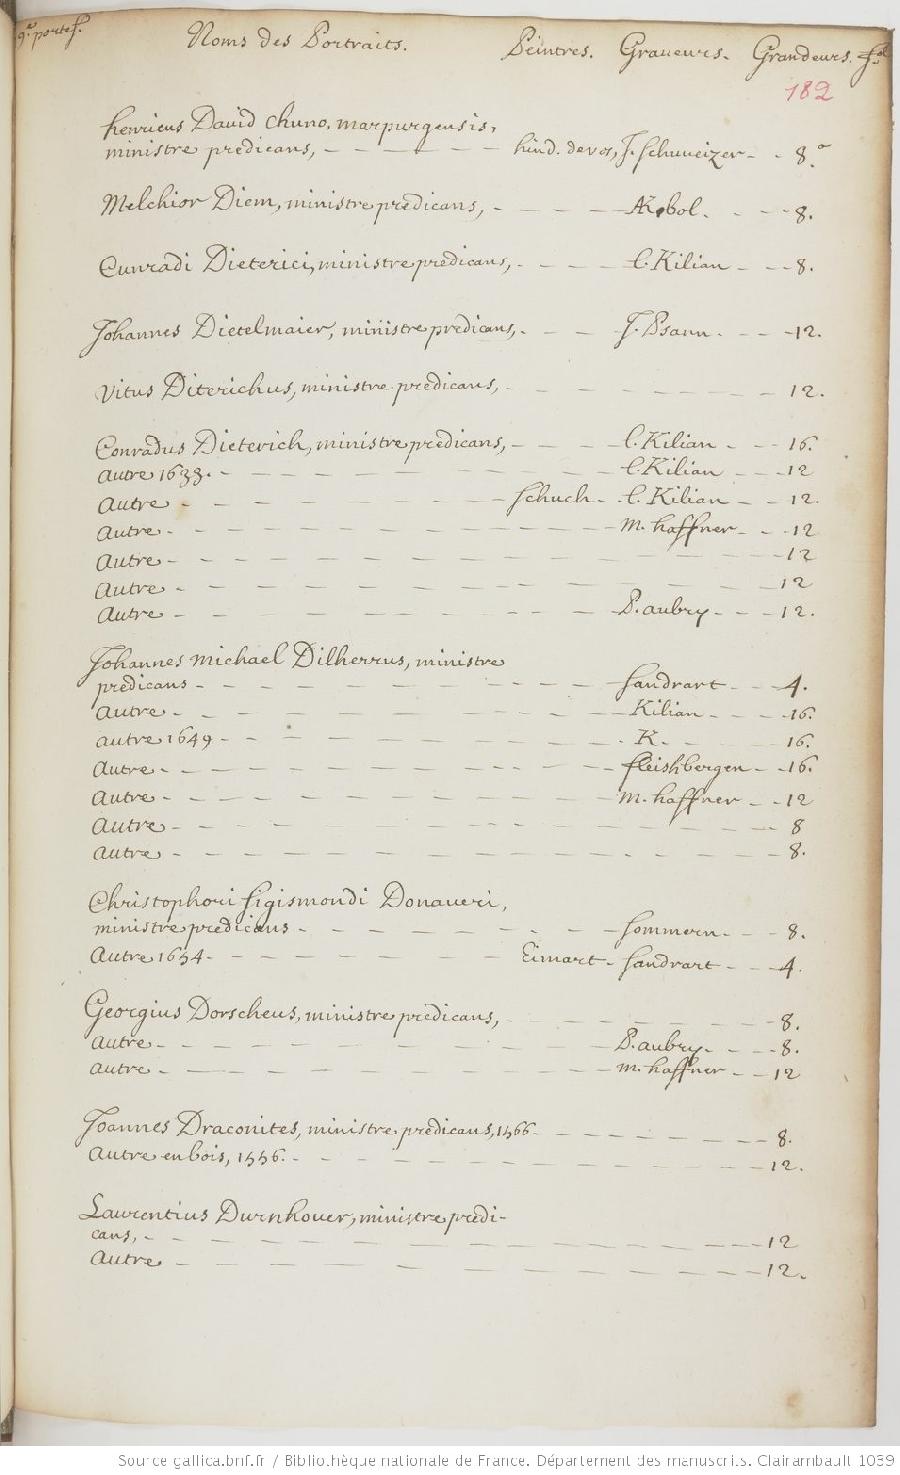 9.e portef. Noms des Portraits. Peintres. Graueurs. Grandeurs.
182
henricus David Chuno, marpurgensis,
ministre predicans, hind. de vos, J. Schuueizer 8.o
Melchior Diem, ministre predicans, AKobol. 8.
Cunradi Dieterici, ministre predicans, l. Kilian 8.
Johannes Dietelmaier, ministre predicans, J. Psann. 12.
Vitus Diterichus, ministre predicans, 12.
Conradus Dieterich, ministre predicans, l. Kilian 16.
autre 1633. l. Kilian 12
autre Schuch l. Kilian 12.
autre. m. haffner 12
autre 12
autre 12
autre P. aubry 12.
Johannes michael Dilherrus, ministre
predicans Sandrart 4.
autre Kilian 16.
autre 1649 K. 16.
autre fleishbergen 16.
autre m. haffner 12
autre 8
autre 8.
Christophori Sigismondi Donaueri,
ministre predicans Sommern 8.
autre 1654 Eimart Sandrart 4.
Georgius Dorscheus, ministre predicans, 8.
autre P. aubry 8.
autre m. haffner 12
Joannes Draconites, ministre predicans, 1566 8.
autre en bois, 1556. 12.
Laurentius Durnhouer, ministre predi-
cans, 12
autre 12.
Source gallica.bnf.fr / Bibliothèque nationale de France. Département des manuscrits. Clairambault 1039